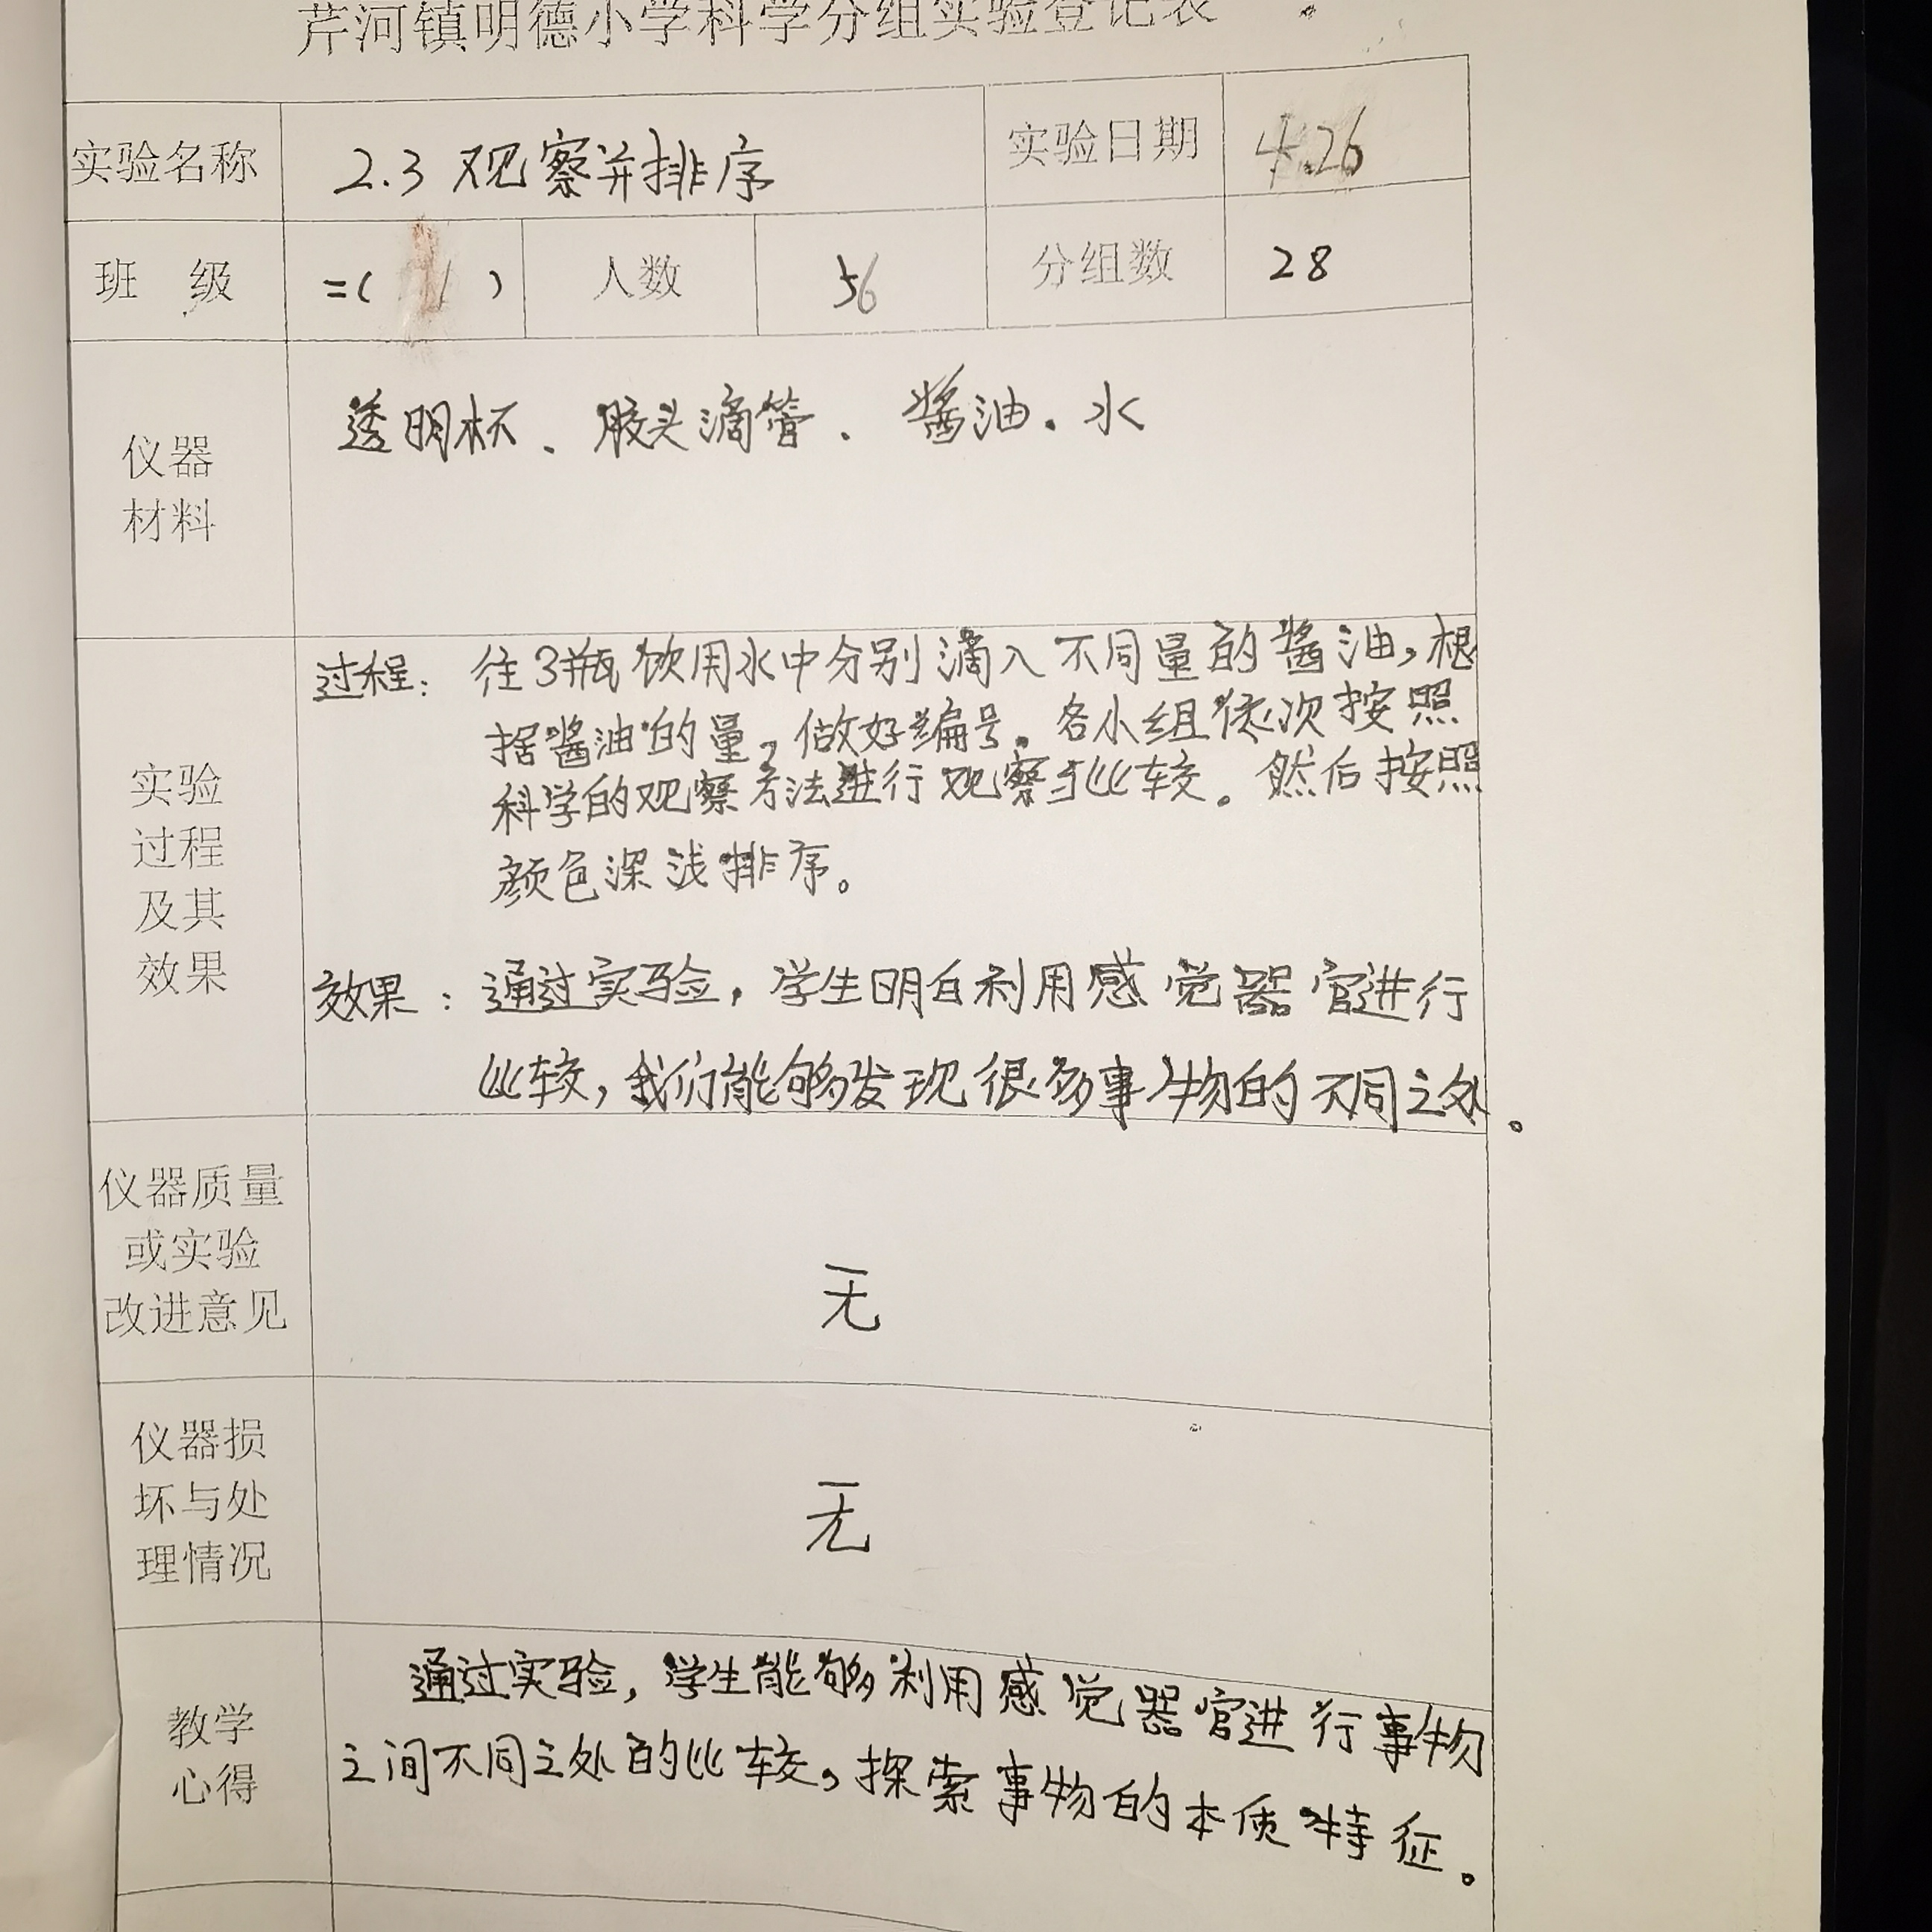 芹河镇明德小学科学分组实验登记表
实验名称 2.3 观察并排序 实验日期 4.26
班 级 二( 1 ) 人数 56 分组数 28
仪器
材料
透明杯、胶头滴管、酱油、水
实验
过程
及其
效果
过程: 往3瓶饮用水中分别滴入不同量的酱油,根
据酱油的量,做好编号。各小组依次按照
科学的观察方法进行观察与比较。然后按照
颜色深浅排序。
效果: 通过实验,学生明白利用感觉器官进行
比较,我们能够发现很多事物的不同之处。
仪器质量
或实验
改进意见
无
仪器损
坏与处
理情况
无
教学
心得
通过实验,学生能够利用感觉器官进行事物
之间不同之处的比较,探索事物的本质特征。